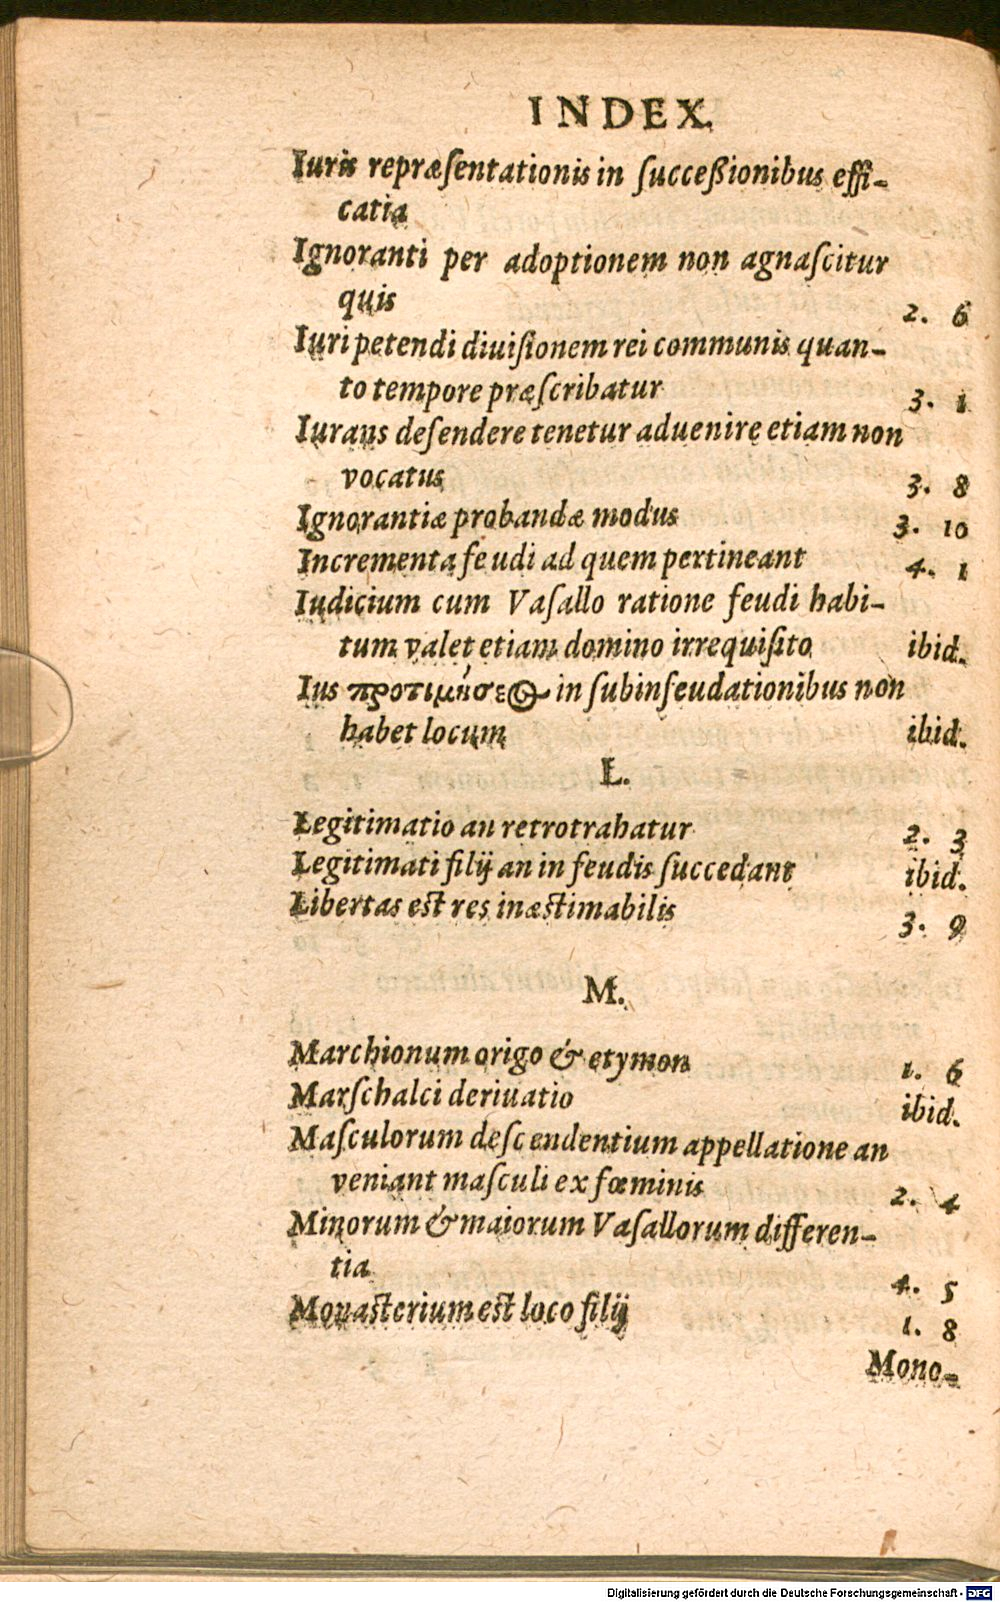 INDEX.
Iuris repræſentationis in ſucceßionibus effi-
catia
Ignoranti per adoptionem non agnaſcitur
quis 2. 6
Iuri petendi diuiſionem rei communis quan-
to tempore præſcribatur 3. 1
Iuraus defendere tenetur aduenire etiam non
vocatus 3. 8
Ignorantiæ probandæ modus 3. 10
Incrementa feudi ad quem pertineant 4. 1
Iudicium cum Vaſallo ratione feudi habi-
tum valet etiam domino irrequiſito ibid.
Ius προτιμήσεως in ſubinfeudationibus non
habet locum ibid.
L.
Legitimatio an retrotrahatur 2. 3
Legitimati filij an in feudis ſuccedant ibid.
Libertas est res inæstimabilis 3. 9
M.
Marchionum origo & etymon 1. 6
Marſchalci deriuatio ibid.
Maſculorum deſcendentium appellatione an
veniant maſculi ex fœminis 2. 4
Minorum & maiorum Vaſallorum differen-
tia 4. 5
Monasterium est loco filij 1. 8
Mono-
Digitalisierung gefördert durch die Deutsche Forschungsgemeinschaft - DFG